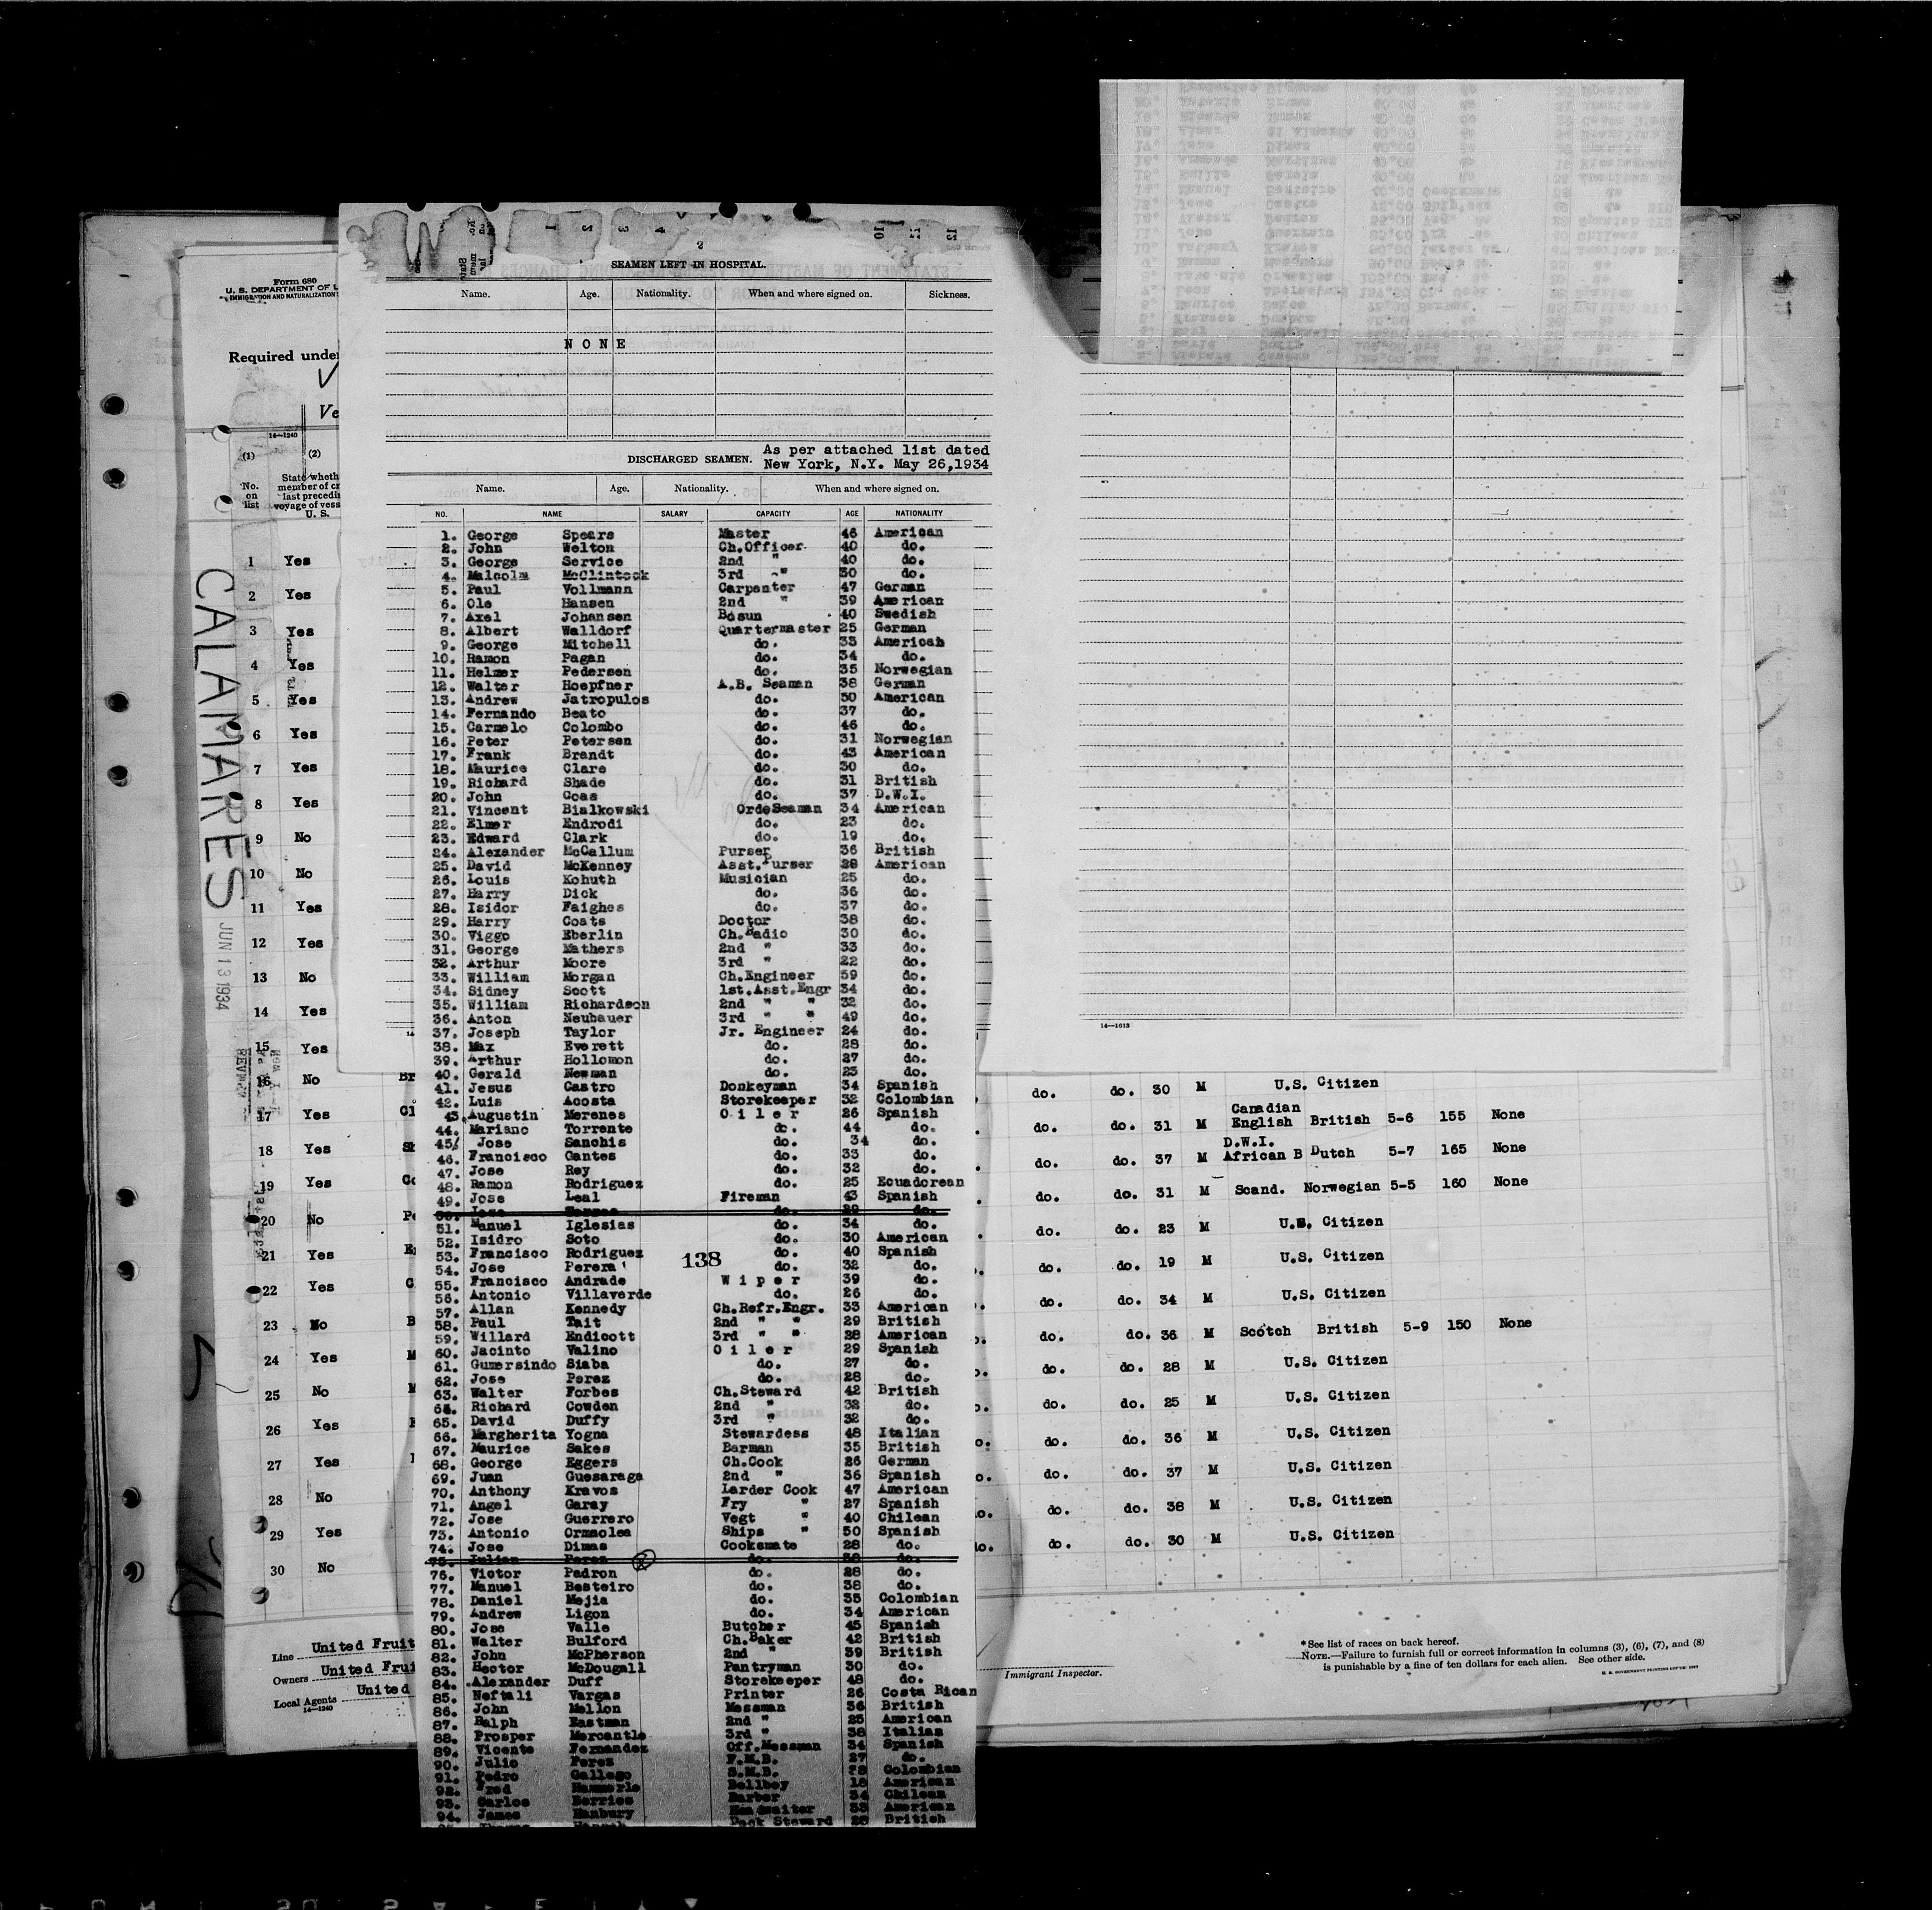 Form 680
U. S. DEPARTMENT OF L
IMMIGRATION AND NATURALIZATION
Required unde
Ve
14—1240
(1) (2)
No. on list
State wheth
member of cr
last precedi
voyage of vess
U. S.
1 Yes
2 Yes
3 Yes
4 Yes
5 Yes
6 Yes
7 Yes
8 Yes
9 No
10 No
11 Yes
12 Yes
13 No
14 Yes
15 Yes
16 No
17 Yes
18 Yes
19 Yes
20 No
21 Yes
22 Yes
23 No
24 Yes
25 No
26 Yes
27 Yes
28 No
29 Yes
30 No
CALAMARES
JUN 13 1934
Line United Fruit
Owners United Frui
Local Agents United
14—1240
SEAMEN LEFT IN HOSPITAL.
Name. Age. Nationality. When and where signed on. Sickness.
N O N E
DISCHARGED SEAMEN. As per attached list dated
New York, N.Y. May 26,1934
Name. Age. Nationality. When and where signed on.
NO. NAME SALARY CAPACITY AGE NATIONALITY
1. George Spears Master 46 American
2. John Welton Ch.Officer 40 do.
3. George Service 2nd " 40 do.
4. Malcolm McClintock 3rd " 30 do.
5. Paul Vollmann Carpenter 47 German
6. Ole Hansen 2nd " 39 American
7. Axel Johansen Bosun 40 Swedish
8. Albert Walldorf Quartermaster 25 German
9. George Mitchell do. 33 American
10. Ramon Pagan do. 34 do.
11. Helmer Pedersen do. 35 Norwegian
12. Walter Hoepfner A.B. Seaman 38 German
13. Andrew Jatropulos do. 50 American
14. Fernando Beato do. 37 do.
15. Carmelo Colombo do. 46 do.
16. Peter Petersen do. 31 Norwegian
17. Frank Brandt do. 43 American
18. Maurice Clare do. 30 do.
19. Richard Shade do. 31 British
20. John Goas do. 37 D.W.I.
21. Vincent Bialkowski OrdeSeaman 34 American
22. Elmer Endrodi do. 23 do.
23. Edward Clark do. 19 do.
24. Alexander McCallum Purser 36 British
25. David McKenney Asst.Purser 28 American
26. Louis Kohuth Musician 25 do.
27. Harry Dick do. 36 do.
28. Isidor Faighes do. 37 do.
29. Harry Coats Doctor 38 do.
30. Viggo Eberlin Ch.Radio 30 do.
31. George Mathers 2nd " 33 do.
32. Arthur Moore 3rd " 22 do.
33. William Morgan Ch.Engineer 59 do.
34. Sidney Scott 1st.Asst.Engr 34 do.
35. William Richardson 2nd " " 32 do.
36. Anton Neubauer 3rd " " 49 do.
37. Joseph Taylor Jr. Engineer 24 do.
38. Max Everett do. 28 do.
39. Arthur Hollomon do. 27 do.
40. Gerald Newman do. 23 do.
41. Jesus Castro Donkeyman 34 Spanish
42. Luis Acosta Storekeeper 32 Colombian
43. Augustin Merenes O i l e r 26 Spanish
44. Mariano Torrente do. 44 do.
45. Jose Sanchis do. 34 do.
46. Francisco Gantes do. 33 do.
47. Jose Rey do. 32 do.
48. Ramon Rodriguez do. 25 Ecuadorean
49. Jose Leal Fireman 43 Spanish
51. Manuel Iglesias do. 34 do.
52. Isidro Soto do. 30 American
53. Francisco Rodriguez do. 40 Spanish
138
54. Jose Perera do. 32 do.
55. Francisco Andrade W i p e r 39 do.
56. Antonio Villaverde do. 26 do.
57. Allan Kennedy Ch.Refr.Engr. 33 American
58. Paul Tait 2nd " " 29 British
59. Willard Endicott 3rd " " 28 American
60. Jacinto Valino O i l e r 29 Spanish
61. Gumersindo Siaba do. 27 do.
62. Jose Perez do. 28 do.
63. Walter Forbes Ch.Steward 42 British
64. Richard Cowden 2nd " 32 do.
65. David Duffy 3rd " 32 do.
66. Margherita Yogna Stewardess 48 Italian
67. Maurice Sakes Barman 35 British
68. George Eggers Ch.Cook 26 German
69. Juan Guesaraga 2nd " 36 Spanish
70. Anthony Kravos Larder Cook 47 American
71. Angel Garay Fry " 27 Spanish
72. Jose Guerrero Vegt " 40 Chilean
73. Antonio Ormaolea Ships " 50 Spanish
74. Jose Dimas Cooksmate 28 do.
75. Julian Perez do. 38 do.
76. Victor Padron do. 28 do.
77. Manuel Besteiro do. 38 do.
78. Daniel Mejia do. 35 Colombian
79. Andrew Ligon do. 34 American
80. Jose Valle Butcher 45 Spanish
81. Walter Bulford Ch.Baker 42 British
82. John McPherson 2nd " 39 British
83. Hector McDougall Pantryman 30 do.
84. Alexander Duff Storekeeper 48 do.
85. Neftali Vargas Printer 26 Costa Rican
86. John Mellon Messman 36 British
87. Ralph Eastman 2nd " 25 American
88. Prosper Mercantle 3rd " 38 Italian
89. Vicente Fernandez Off.Messman 34 Spanish
90. Julio Perez F.M.B. 27 do.
91. Pedro Gallego S.M.B. Colombian
92. Fred Hammerle Bellboy 18 American
93. Carlos Berries Barber 34 Chilean
94. James Hanbury Headwaiter 33 American
Deck Steward 28 British
14—1613
do. do. 30 M U.S. Citizen
do. do. 31 M Canadian English British 5-6 155 None
do. do. 37 M D.W.I. African B Dutch 5-7 165 None
do. do. 31 M Scand. Norwegian 5-5 160 None
do. do. 23 M U.S. Citizen
do. do. 19 M U.S. Citizen
do. do. 34 M U.S. Citizen
do. do. 36 M Scotch British 5-9 150 None
do. do. 28 M U.S. Citizen
do. do. 25 M U.S. Citizen
do. do. 36 M U.S. Citizen
do. do. 37 M U.S. Citizen
do. do. 38 M U.S. Citizen
do. do. 30 M U.S. Citizen
Immigrant Inspector.
*See list of races on back hereof.
NOTE.—Failure to furnish full or correct information in columns (3), (6), (7), and (8)
is punishable by a fine of ten dollars for each alien. See other side.